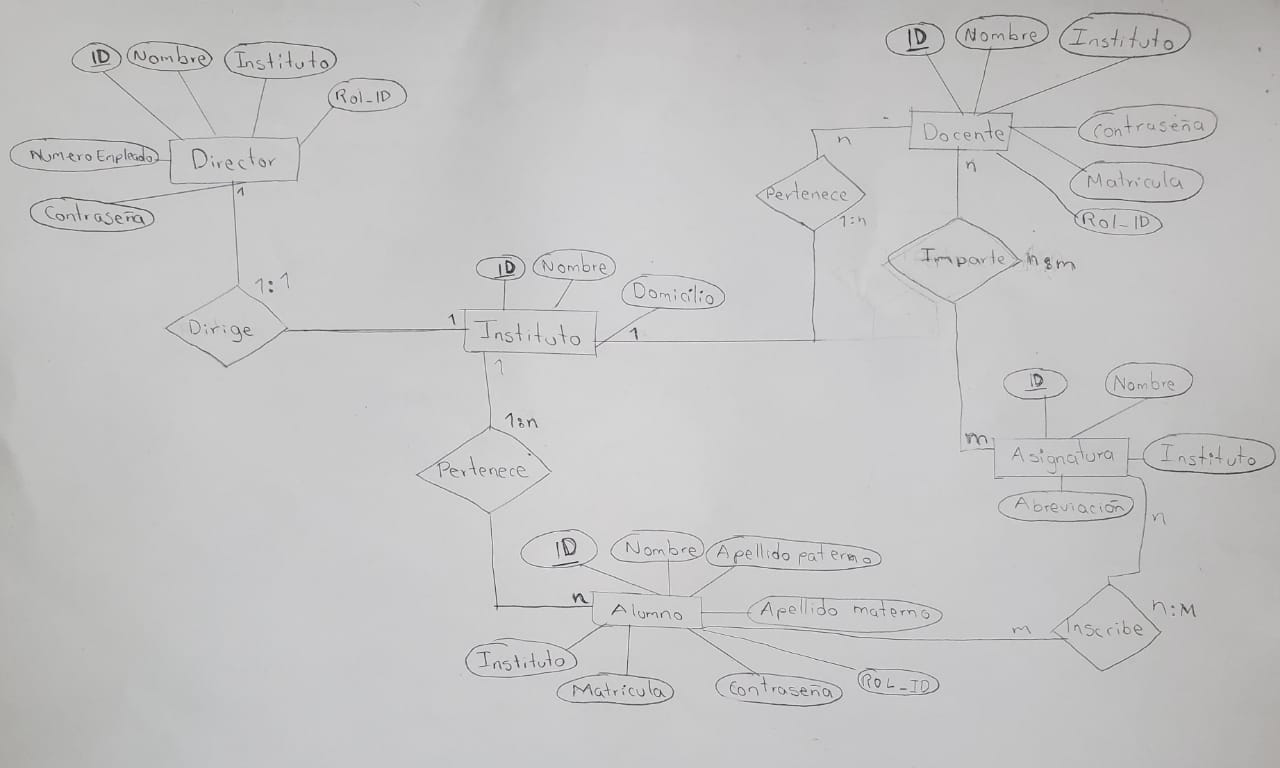 ID Nombre Instituto
Rol_ID
Número Enpleado
Director
Contraseña
1
1:1
Dirige
1
ID Nombre
Domicilio
Instituto
1
1
1:n
Pertenece
n
ID Nombre Instituto
Docente
Contraseña
Matricula
Rol_ID
n
Pertenece
1:n
n
Imparte
n:m
m
ID Nombre
Asignatura
Instituto
Abreviación
n
n:M
Inscribe
m
ID Nombre Apellido paterno
Alumno
Apellido materno
Instituto
Matrícula
Contraseña
ROL_ID